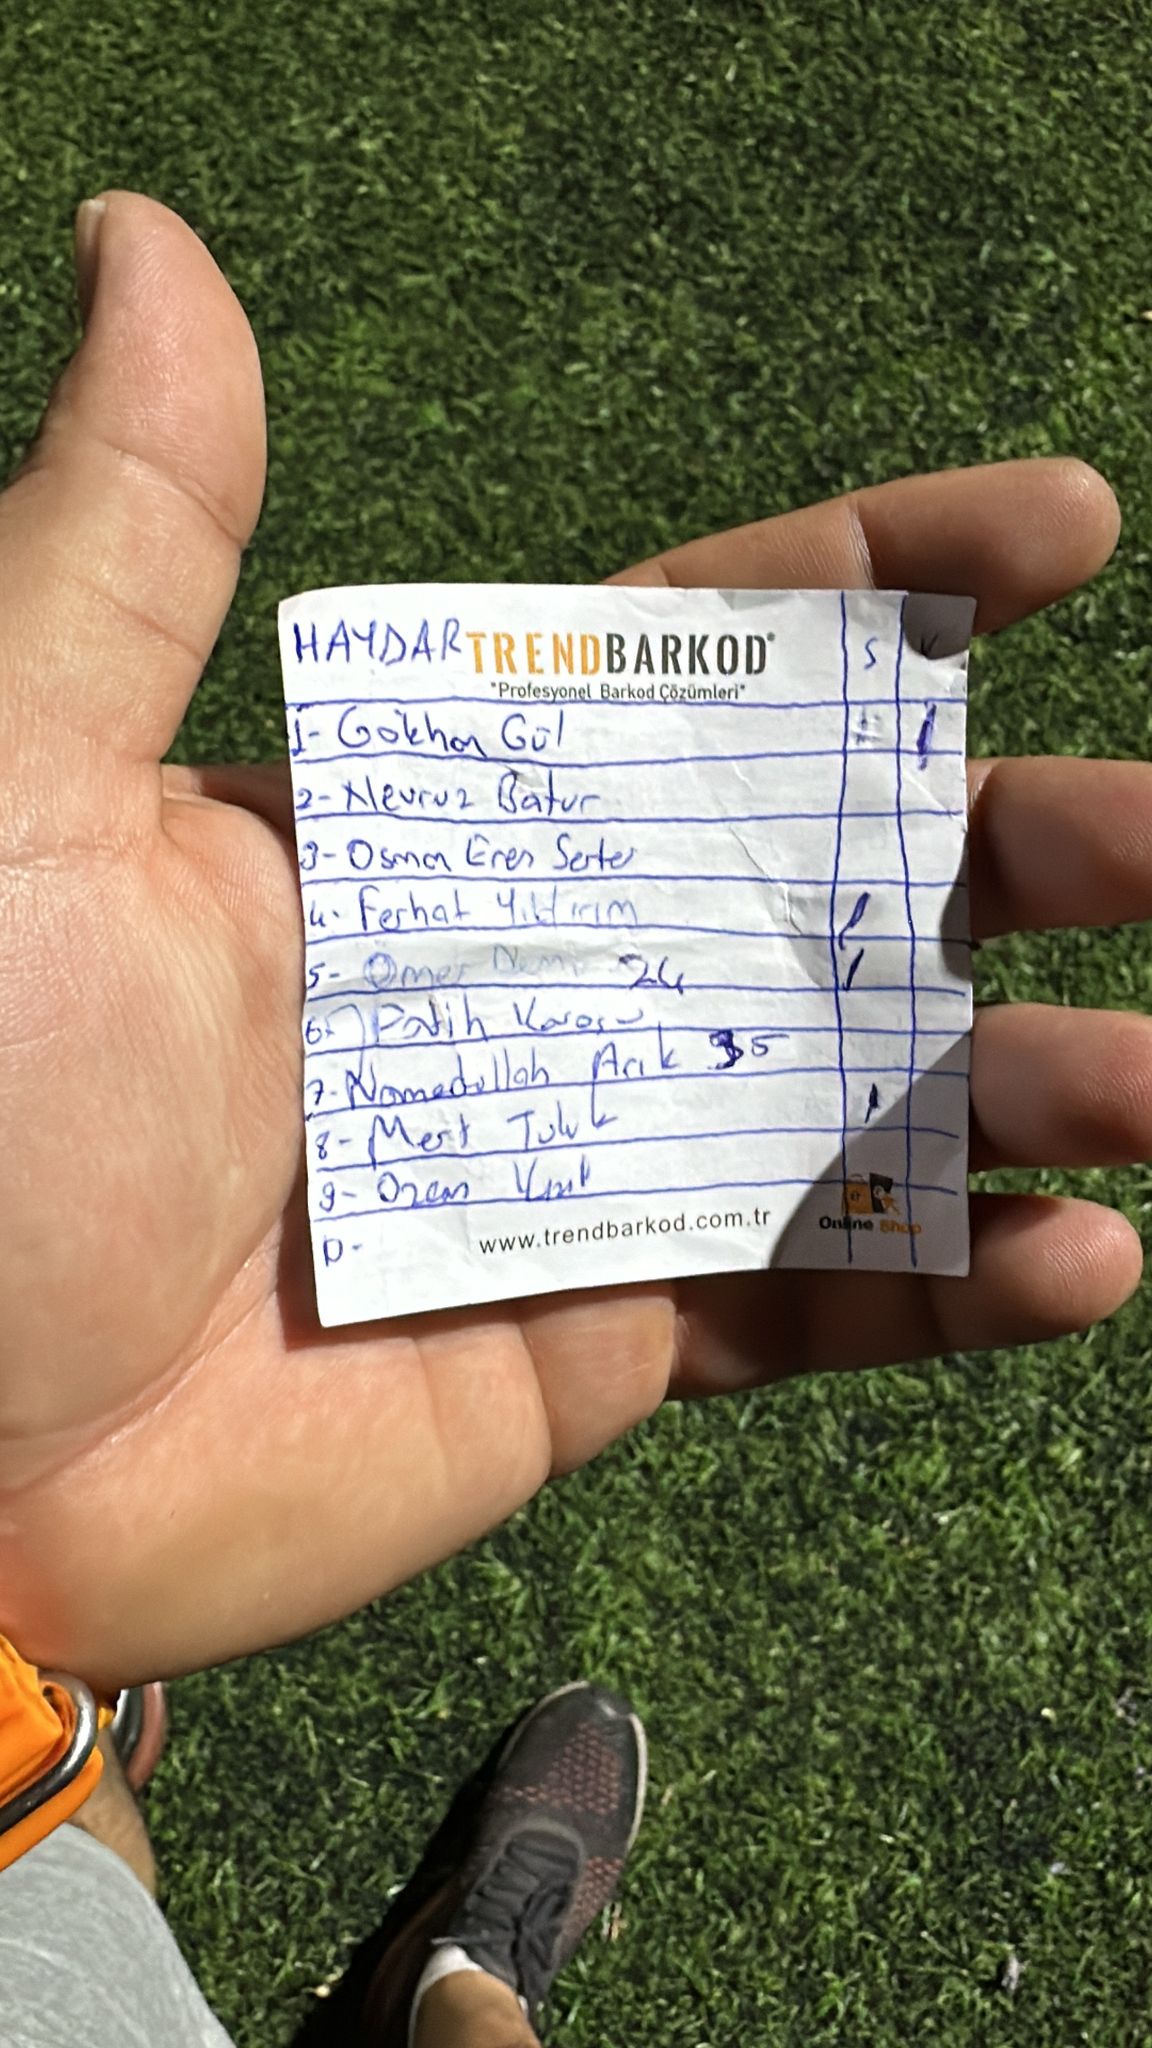 HAYDAR TRENDBARKOD® S
"Profesyonel Barkod Çözümleri"
1- Gökhan Gül
2- Nevruz Batur
3- Osman Eren Serter
4- Ferhat Yıldırım
5- Ömer 24
6- Fatih Karasu
7- Namedullah Arık 35
8- Mert Tuluk
9- Ozcan
www.trendbarkod.com.tr
Online Shop